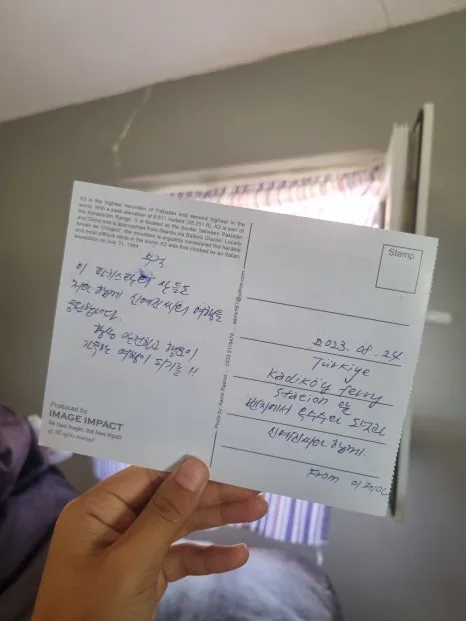 K2 is the highest mountain of Pakistan and second highest in the
world. With a peak elevation of 8,611 meters (28,251 ft), K2 is part of
the Karakoram Range. It is located at the border between Pakistan
and China and is approached from Skardu via Baltoro Glacier. Locally
known as 'Chogori', the mountain is arguably considered the hardest
and most difficult climb in the world. K2 was first climbed by an Italian
expedition on July 31, 1954
이 파키스탄의 산들도
함께 여행을
응원합니다.
항상 안전하고 행운이
가득한 여행이 되기를!!
Produced by
IMAGE IMPACT
We have images, that have impact
© All rights reserved
Photo by:
Stamp
2023. 08. 24
Türkiye
Kadıköy Ferry
Stacion 앞
벤치에서
함께.
From